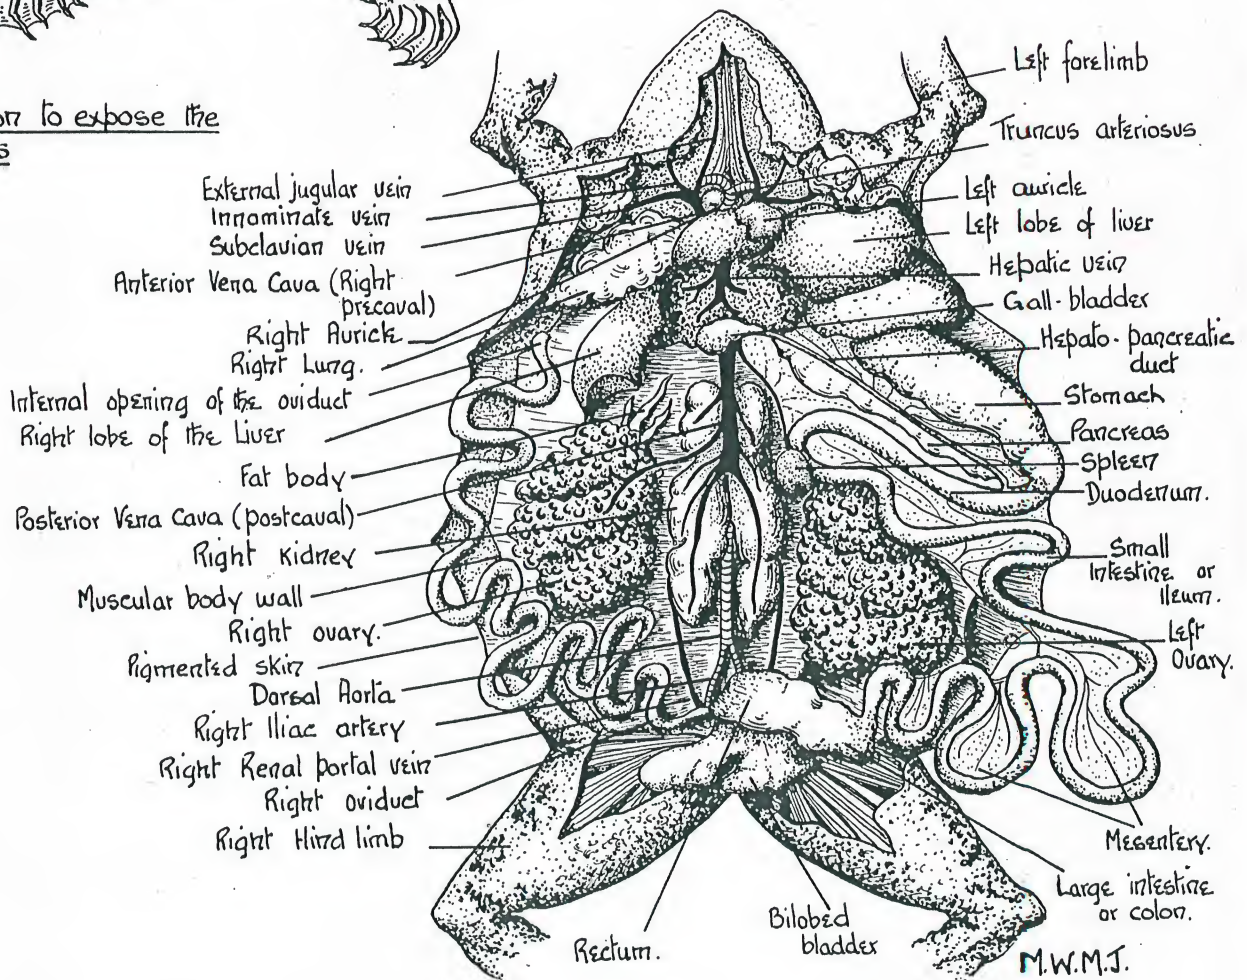 on to expose the
s
External jugular vein
Innominate vein
Subclavian vein
Anterior Vena Cava (Right
precaval)
Right Auricle
Right Lung.
Internal opening of the oviduct
Right lobe of the Liver
Fat body
Posterior Vena Cava (postcaval)
Right Kidney
Muscular body wall
Right ovary.
Pigmented skin
Dorsal Aorta
Right Iliac artery
Right Renal portal vein
Right oviduct
Right Hind limb
Left forelimb
Truncus arteriosus
Left auricle
Left lobe of liver
Hepatic vein
Gall-bladder
Hepato-pancreatic
duct
Stomach
Pancreas
Spleen
Duodenum.
Small
Intestine or
Ileum.
Left
Ovary.
Mesentery.
Large intestine
or colon.
Bilobed
bladder
Rectum.
M.W.M.J.